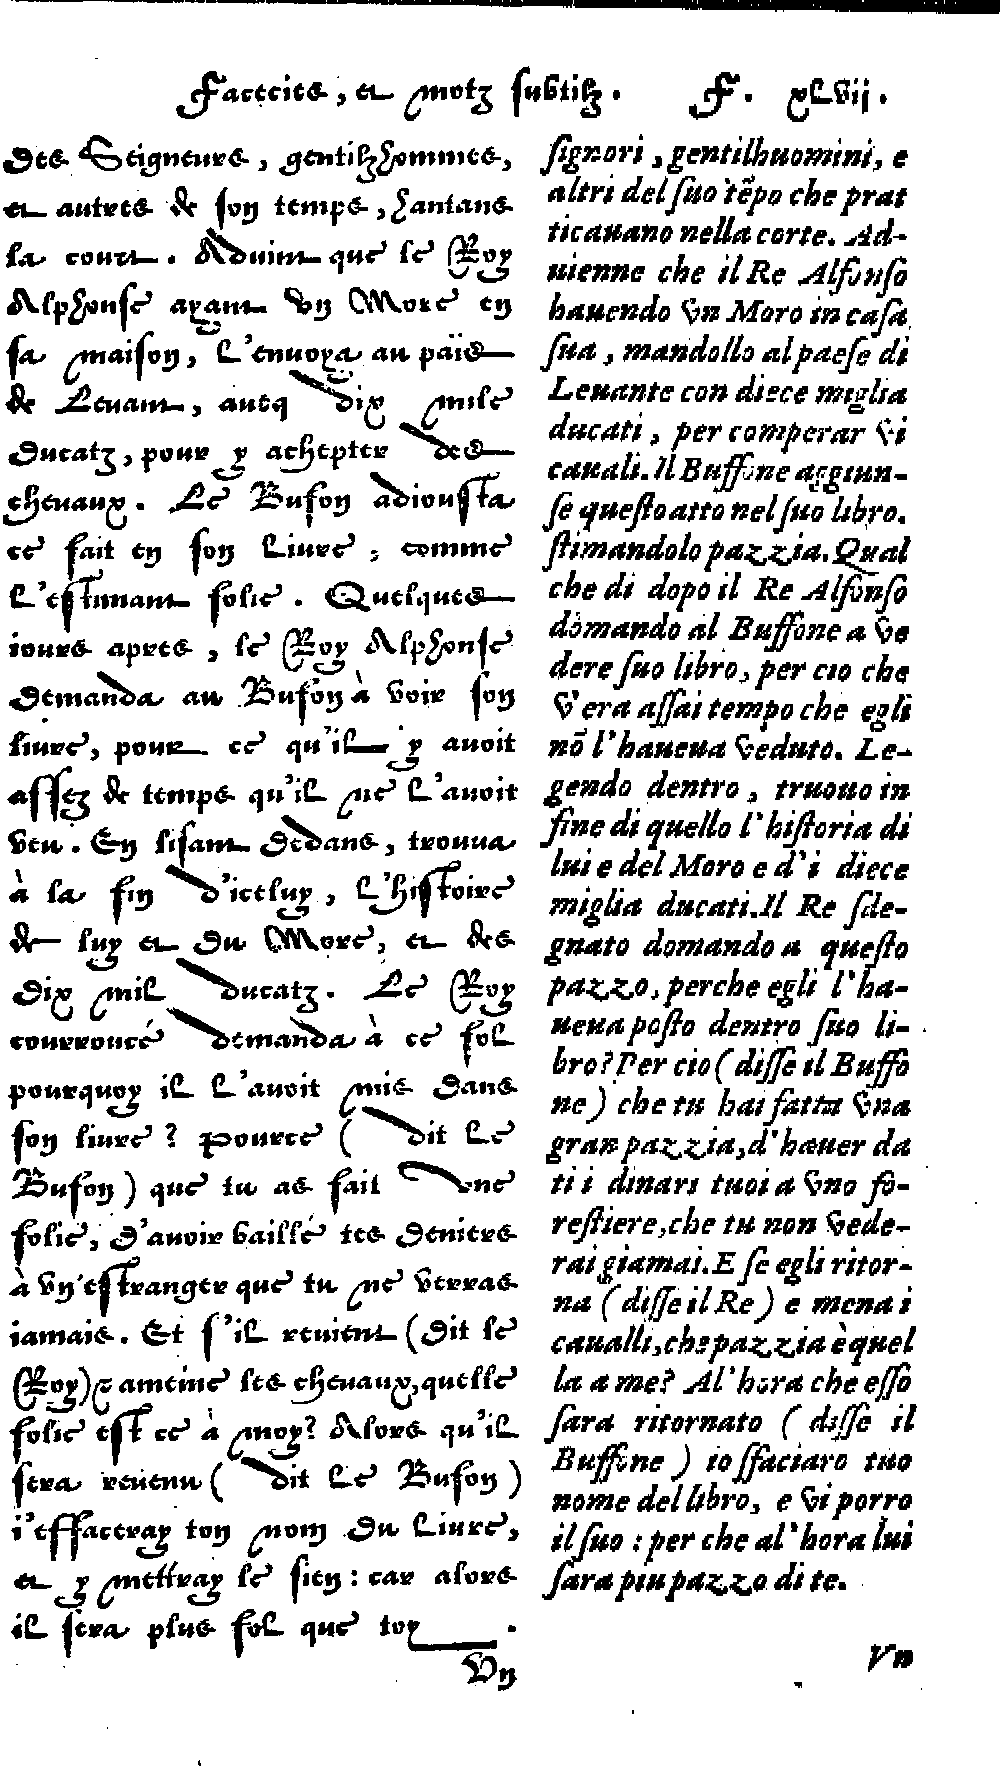 Facecies, et motz subtilz. F. xLvij.
des Seigneurs, gentilzhommes,
et autres de son temps, hantans
la court. Aduint que le Roy
Alphonse ayant vn More en
sa maison, L'enuoya au païs
de Leuant, aueq dix mile
Ducatz, pour y achepter des
cheuaux. Le Bufon adiousta
ce fait en son Liure, comme
L'estimant folie. Quelques
iours apres, le Roy Alphonse
demanda au Bufon à voir son
liure, pour ce qu'il y auoit
assez de temps qu'il ne L'auoit
veu. En lisant dedans, trouua
à la fin d'iceluy, L'histoire
de luy et du More, et des
Dix mil ducatz. Le Roy
courroucé demanda à ce fol
pourquoy il L'auoit mis dans
son liure? Pource ( dit Le
Bufon) que tu as fait vne
folie, d'auoir baillé tes deniers
à vn estranger que tu ne verras
iamais. Et s'il reuient (dit le
Roy) & ameine les cheuaux, quelle
folie est ce à moy? Alors qu'il
sera reuenu ( dit Le Bufon )
i'effaceray ton nom du Liure,
et y mettray le sien : car alors
il sera plus fol que toy.
Vn
signori, gentilhuomini, e
altri del suo tẽpo che prat
ticauano nella corte. Ad-
uienne che il Re Alfonso
hauendo vn Moro in casa
sua, mandollo al paese di
Leuante con diece miglia
ducati, per comperar vi
cauali. Il Buffone aggiun-
se questo atto nel suo libro.
stimandolo pazzia. Qual
che di dopo il Re Alfonso
domando al Buffone a ve
dere suo libro, per cio che
v'era assai tempo che egli
nõ l'haueua veduto. Le-
gendo dentro, truouo in
fine di quello l'historia di
lui e del Moro e d'i diece
miglia ducati. Il Re sde-
gnato domando a questo
pazzo, perche egli l'ha-
ueua posto dentro suo li-
bro? Per cio ( disse il Buffo
ne ) che tu hai fatta vna
gran pazzia, d'hauer da
ti i dinari tuoi a vno fo-
restiere, che tu non vede-
rai giamai. E se egli ritor-
na ( disse il Re ) e mena i
caualli, che pazzia è quel
la a me? Al'hora che esso
sara ritornato ( disse il
Buffone ) io sfaciaro tuo
nome del libro, e vi porro
il suo : per che al'hora lui
sara piu pazzo di te.
Vn